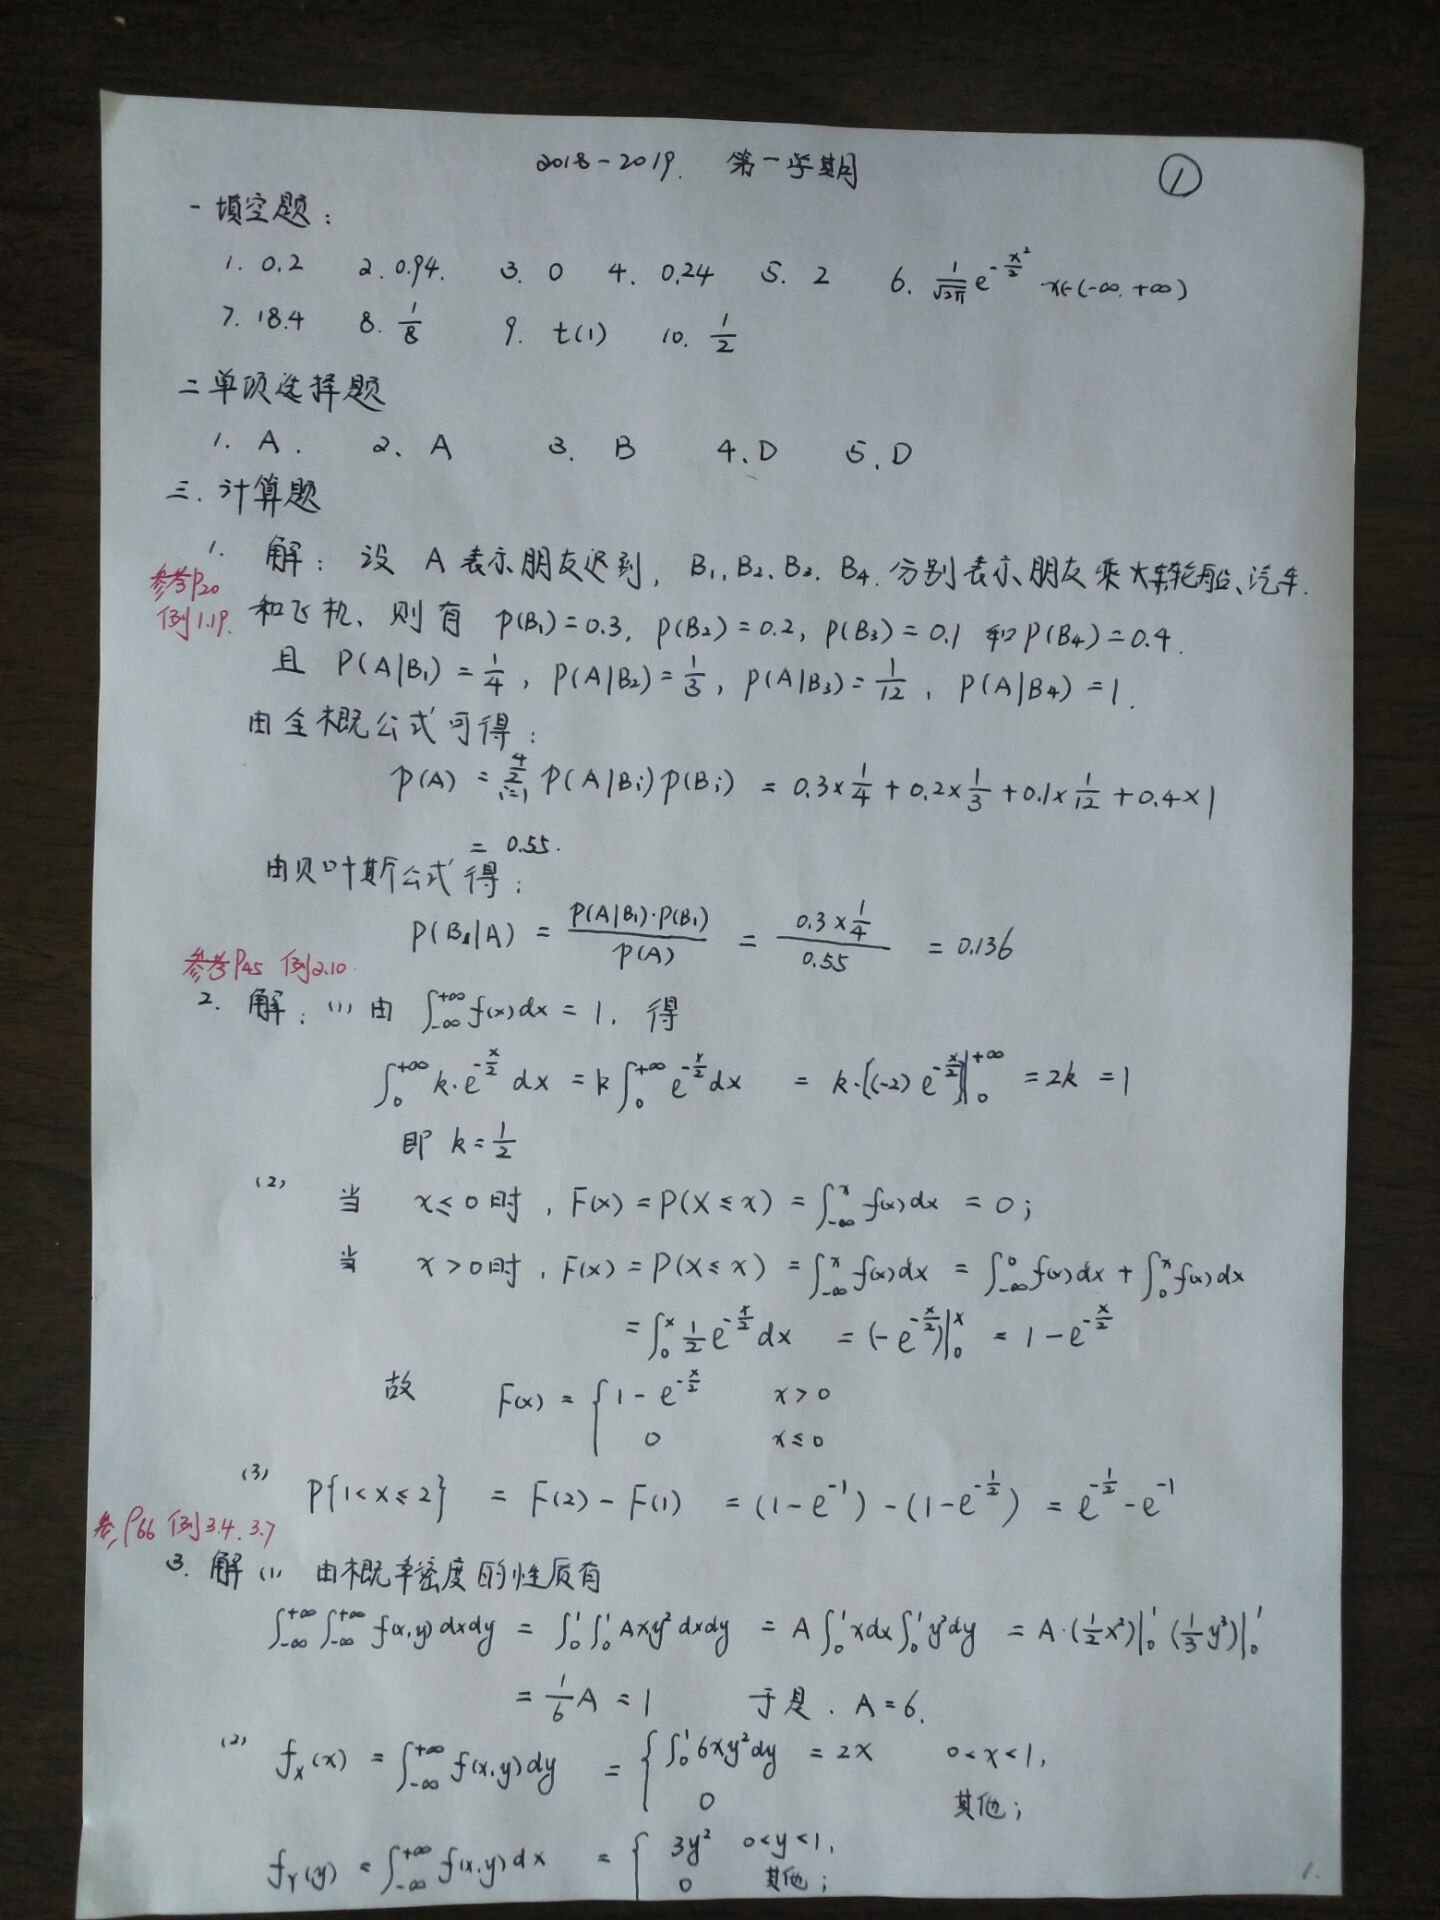 2018-2019. 第一学期 ①
一 填空题：
1. 0.2 2. 0.94. 3. 0 4. 0.24 5. 2 6. \frac{1}{\sqrt{2π}} e^{-\frac{x^2}{2}} x∈(-∞, +∞)
7. 18.4 8. \frac{1}{8} 9. t(1) 10. \frac{1}{2}
二 单项选择题
1. A. 2、A 3. B 4、D 5. D
三. 计算题
1. 解：设 A 表示朋友迟到, B₁、B₂、B₃、B₄ 分别表示朋友乘火车、轮船、汽车.
参考P20
例1.19.
和飞机、则有 P(B₁)=0.3, P(B₂)=0.2, P(B₃)=0.1 和 P(B₄)=0.4.
且 P(A|B₁)=\frac{1}{4}, P(A|B₂)=\frac{1}{3}, P(A|B₃)=\frac{1}{12}, P(A|B₄)=1.
由全概公式可得：
P(A) = \sum_{i=1}^{4} P(A|Bi)P(Bi) = 0.3×\frac{1}{4} + 0.2×\frac{1}{3} + 0.1×\frac{1}{12} + 0.4×1
= 0.55.
由贝叶斯公式得：
P(B₁|A) = \frac{P(A|B₁)·P(B₁)}{P(A)} = \frac{0.3×\frac{1}{4}}{0.55} = 0.136
参考P45 例2.10.
2. 解：(1) 由 ∫_{-∞}^{+∞} f(x)dx = 1, 得
∫_0^{+∞} k·e^{-\frac{x}{2}} dx = k∫_0^{+∞} e^{-\frac{x}{2}} dx = k·[(-2) e^{-\frac{x}{2}}]|_0^{+∞} = 2k = 1
即 k=\frac{1}{2}
(2) 当 x≤0时, F(x) = P(X≤x) = ∫_{-∞}^x f(x)dx = 0;
当 x>0时, F(x) = P(X≤x) = ∫_{-∞}^x f(x)dx = ∫_{-∞}^0 f(x)dx + ∫_0^x f(x)dx
= ∫_0^x \frac{1}{2} e^{-\frac{x}{2}} dx = (-e^{-\frac{x}{2}})|_0^x = 1-e^{-\frac{x}{2}}
故 F(x) = { 1-e^{-\frac{x}{2}} x>0
0 x≤0
(3) P{1<X≤2} = F(2)-F(1) = (1-e^{-1})-(1-e^{-\frac{1}{2}}) = e^{-\frac{1}{2}}-e^{-1}
参P66 例3.4. 3.7
3. 解 (1) 由概率密度的性质有
∫_{-∞}^{+∞}∫_{-∞}^{+∞} f(x,y)dxdy = ∫_0^1∫_0^1 Axy²dxdy = A∫_0^1 xdx∫_0^1 y²dy = A·(\frac{1}{2}x²)|_0^1 (\frac{1}{3}y³)|_0^1
= \frac{1}{6}A = 1 于是. A=6.
(2) f_X(x) = ∫_{-∞}^{+∞} f(x,y)dy = { ∫_0^1 6xy²dy = 2x 0<x<1,
0 其他;
f_Y(y) = ∫_{-∞}^{+∞} f(x,y)dx = { 3y² 0<y<1,
0 其他;
1.